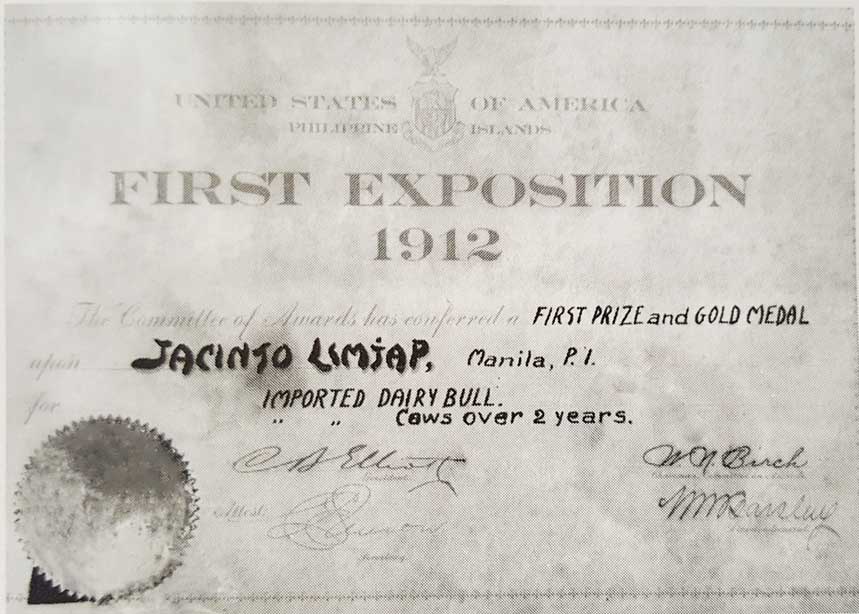 UNITED STATES OF AMERICA
PHILIPPINE ISLANDS
FIRST EXPOSITION
1912
The Committee of Awards has conferred a FIRST PRIZE and GOLD MEDAL
upon JACINTO LIMJAP, Manila, P.I.
for IMPORTED DAIRY BULL.
" " Cows over 2 years.
C B Elliott W N Birch
President
Attest
Secretary